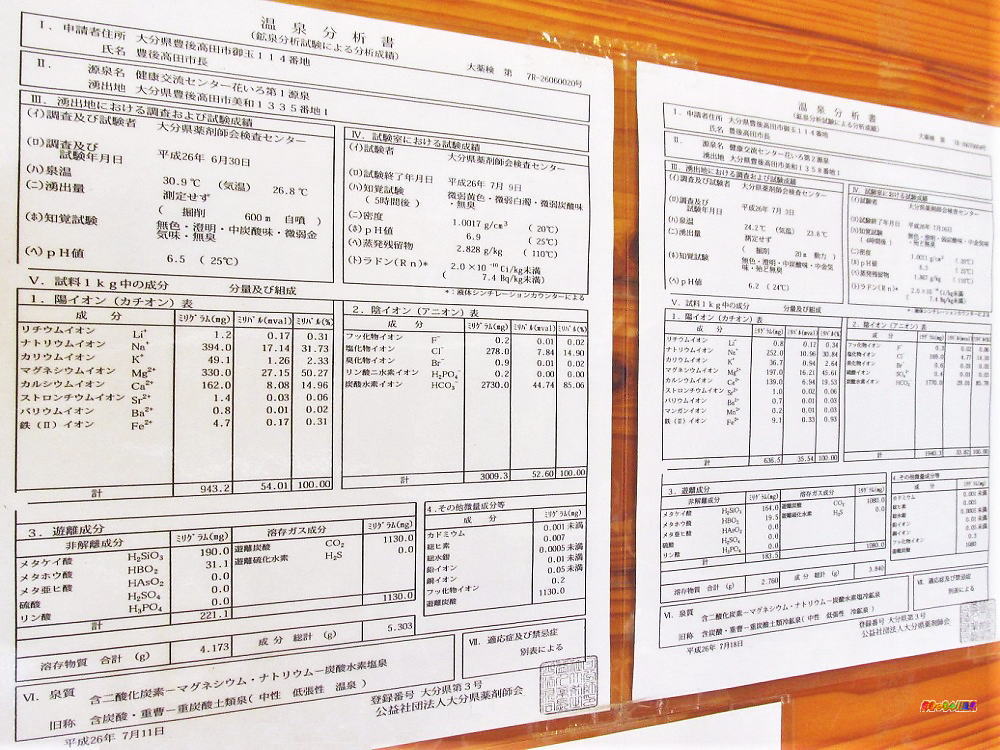 温泉分析書
(鉱泉分析試験による分析成績)
大薬検 第 7R-26060020号
Ⅰ. 申請者住所 大分県豊後高田市御玉114番地
氏名 豊後高田市長
Ⅱ. 源泉名 健康交流センター花いろ第1源泉
湧出地 大分県豊後高田市美和1335番地1
Ⅲ. 湧出地における調査および試験成績
(イ)調査及び試験者 大分県薬剤師会検査センター
(ロ)調査及び試験年月日 平成26年 6月30日
(ハ)泉温 30.9℃ (気温) 26.8℃
(ニ)湧出量 測定せず
( 掘削 600m 自噴 )
(ホ)知覚試験 無色・澄明・中炭酸味・微弱金気味・無臭
(ヘ)pH値 6.5 (25℃)
Ⅳ. 試験室における試験成績
(イ)試験者 大分県薬剤師会検査センター
(ロ)試験終了年月日 平成26年 7月 9日
(ハ)知覚試験 微弱黄色・微弱白濁・微弱炭酸味
(5時間後) ・無臭
(ニ)密度 1.0017g/cm³ (20℃)
(ホ)pH値 6.9 (25℃)
(ヘ)蒸発残留物 2.828g/kg (110℃)
(ト)ラドン(Rn)* 2.0×10⁻¹⁰Ci/kg未満
( 7.4Bq/kg未満)
*:液体シンチレーションカウンターによる
Ⅴ. 試料1kg中の成分 分量及び組成
1. 陽イオン(カチオン)表
成分 ミリグラム(mg) ミリバル(mval) ミリバル(%)
リチウムイオン Li⁺ 1.2 0.17 0.31
ナトリウムイオン Na⁺ 394.0 17.14 31.73
カリウムイオン K⁺ 49.1 1.26 2.33
マグネシウムイオン Mg²⁺ 330.0 27.15 50.27
カルシウムイオン Ca²⁺ 162.0 8.08 14.96
ストロンチウムイオン Sr²⁺ 1.4 0.03 0.06
バリウムイオン Ba²⁺ 0.8 0.01 0.02
鉄(Ⅱ)イオン Fe²⁺ 4.7 0.17 0.31
計 943.2 54.01 100.00
2. 陰イオン(アニオン)表
成分 ミリグラム(mg) ミリバル(mval) ミリバル(%)
フッ化物イオン F⁻ 0.2 0.01 0.02
塩化物イオン Cl⁻ 278.0 7.84 14.90
臭化物イオン Br⁻ 0.9 0.01 0.02
リン酸二水素イオン H₂PO₄⁻ 0.2 0.00 0.00
炭酸水素イオン HCO₃⁻ 2730.0 44.74 85.06
計 3009.3 52.60 100.00
3. 遊離成分
非解離成分 ミリグラム(mg) 溶存ガス成分 ミリグラム(mg)
メタケイ酸 H₂SiO₃ 190.0 遊離炭酸 CO₂ 1130.0
メタホウ酸 HBO₂ 31.1 遊離硫化水素 H₂S 0.0
メタ亜ヒ酸 HAsO₂ 0.0
硫酸 H₂SO₄ 0.0
リン酸 H₃PO₄ 0.0
計 221.1 1130.0
4. その他微量成分等
成分 ミリグラム(mg)
カドミウム 0.001未満
総ヒ素 0.007
総水銀 0.0005未満
鉛イオン 0.01未満
銅イオン 0.05未満
フッ化物イオン 0.2
遊離炭酸
溶存物質 合計(g) 4.173 成分総計(g) 5.303
Ⅵ. 泉質 含二酸化炭素－マグネシウム・ナトリウム－炭酸水素塩泉
旧称 含炭酸・重曹－重炭酸土類泉(中性 低張性 温泉)
Ⅶ. 適応症及び禁忌症
別表による
平成26年 7月11日
登録番号 大分県第3号
公益社団法人大分県薬剤師会
温泉分析書
(鉱泉分析試験による分析成績)
大薬検 第
Ⅰ. 申請者住所 大分県豊後高田市御玉114番地
氏名 豊後高田市長
Ⅱ. 源泉名 健康交流センター花いろ第2源泉
湧出地 大分県豊後高田市美和1358番地1
Ⅲ. 湧出地における調査および試験成績
(イ)調査及び試験者 大分県薬剤師会検査センター
(ロ)調査及び試験年月日 平成26年 7月 3日
(ハ)泉温 24.2℃ (気温) 23.8℃
(ニ)湧出量 測定せず
( 掘削 20m 動力 )
(ホ)知覚試験 無色・澄明・中炭酸味・中金気味・殆ど無臭
(ヘ)pH値 6.2 (24℃)
Ⅳ. 試験室における試験成績
(イ)試験者 大分県薬剤師会検査センター
(ロ)試験終了年月日 平成26年 7月16日
(ハ)知覚試験
(ニ)密度 (20℃)
(ホ)pH値 (25℃)
(ヘ)蒸発残留物 (110℃)
(ト)ラドン(Rn)*
Ⅴ. 試料1kg中の成分 分量及び組成
1. 陽イオン(カチオン)表
成分 ミリグラム(mg) ミリバル(mval) ミリバル(%)
リチウムイオン Li⁺ 0.8 0.12 0.34
ナトリウムイオン Na⁺ 252.0 10.96 30.84
カリウムイオン K⁺ 36.7 0.94 2.64
マグネシウムイオン Mg²⁺ 197.0 16.21 45.61
カルシウムイオン Ca²⁺ 139.0 6.94 19.53
ストロンチウムイオン Sr²⁺ 1.0 0.02 0.06
バリウムイオン Ba²⁺ 0.7 0.01 0.03
マンガンイオン Mn²⁺ 0.2 0.01 0.03
鉄(Ⅱ)イオン Fe²⁺ 9.1 0.33 0.93
計 636.5 35.54 100.00
2. 陰イオン(アニオン)表
フッ化物イオン F⁻
塩化物イオン Cl⁻
臭化物イオン Br⁻
硫酸イオン
炭酸水素イオン HCO₃⁻ 1770.0
計 100.00
3. 遊離成分
非解離成分 ミリグラム(mg) 溶存ガス成分 ミリグラム(mg)
メタケイ酸 H₂SiO₃ 164.0 遊離炭酸 CO₂ 1080.0
メタホウ酸 HBO₂ 19.5 遊離硫化水素 H₂S 0.0
メタ亜ヒ酸 HAsO₂ 0.0
硫酸 H₂SO₄ 0.0
リン酸 H₃PO₄ 0.0
計 183.5 1080.0
4. その他微量成分等
カドミウム 0.001未満
総ヒ素
総水銀 0.0005未満
鉛イオン 0.01未満
銅イオン 0.05未満
フッ化物イオン 0.3
遊離炭酸 1080
溶存物質 合計(g) 2.760 成分総計(g) 3.840
Ⅵ. 泉質 含二酸化炭素－マグネシウム・ナトリウム－炭酸水素塩冷鉱泉
旧称 含炭酸・重曹－重炭酸土類冷鉱泉(中性 低張性 冷鉱泉)
Ⅶ. 適応症及び禁忌症
別表による
平成26年 7月18日
登録番号 大分県第3号
公益社団法人大分県薬剤師会